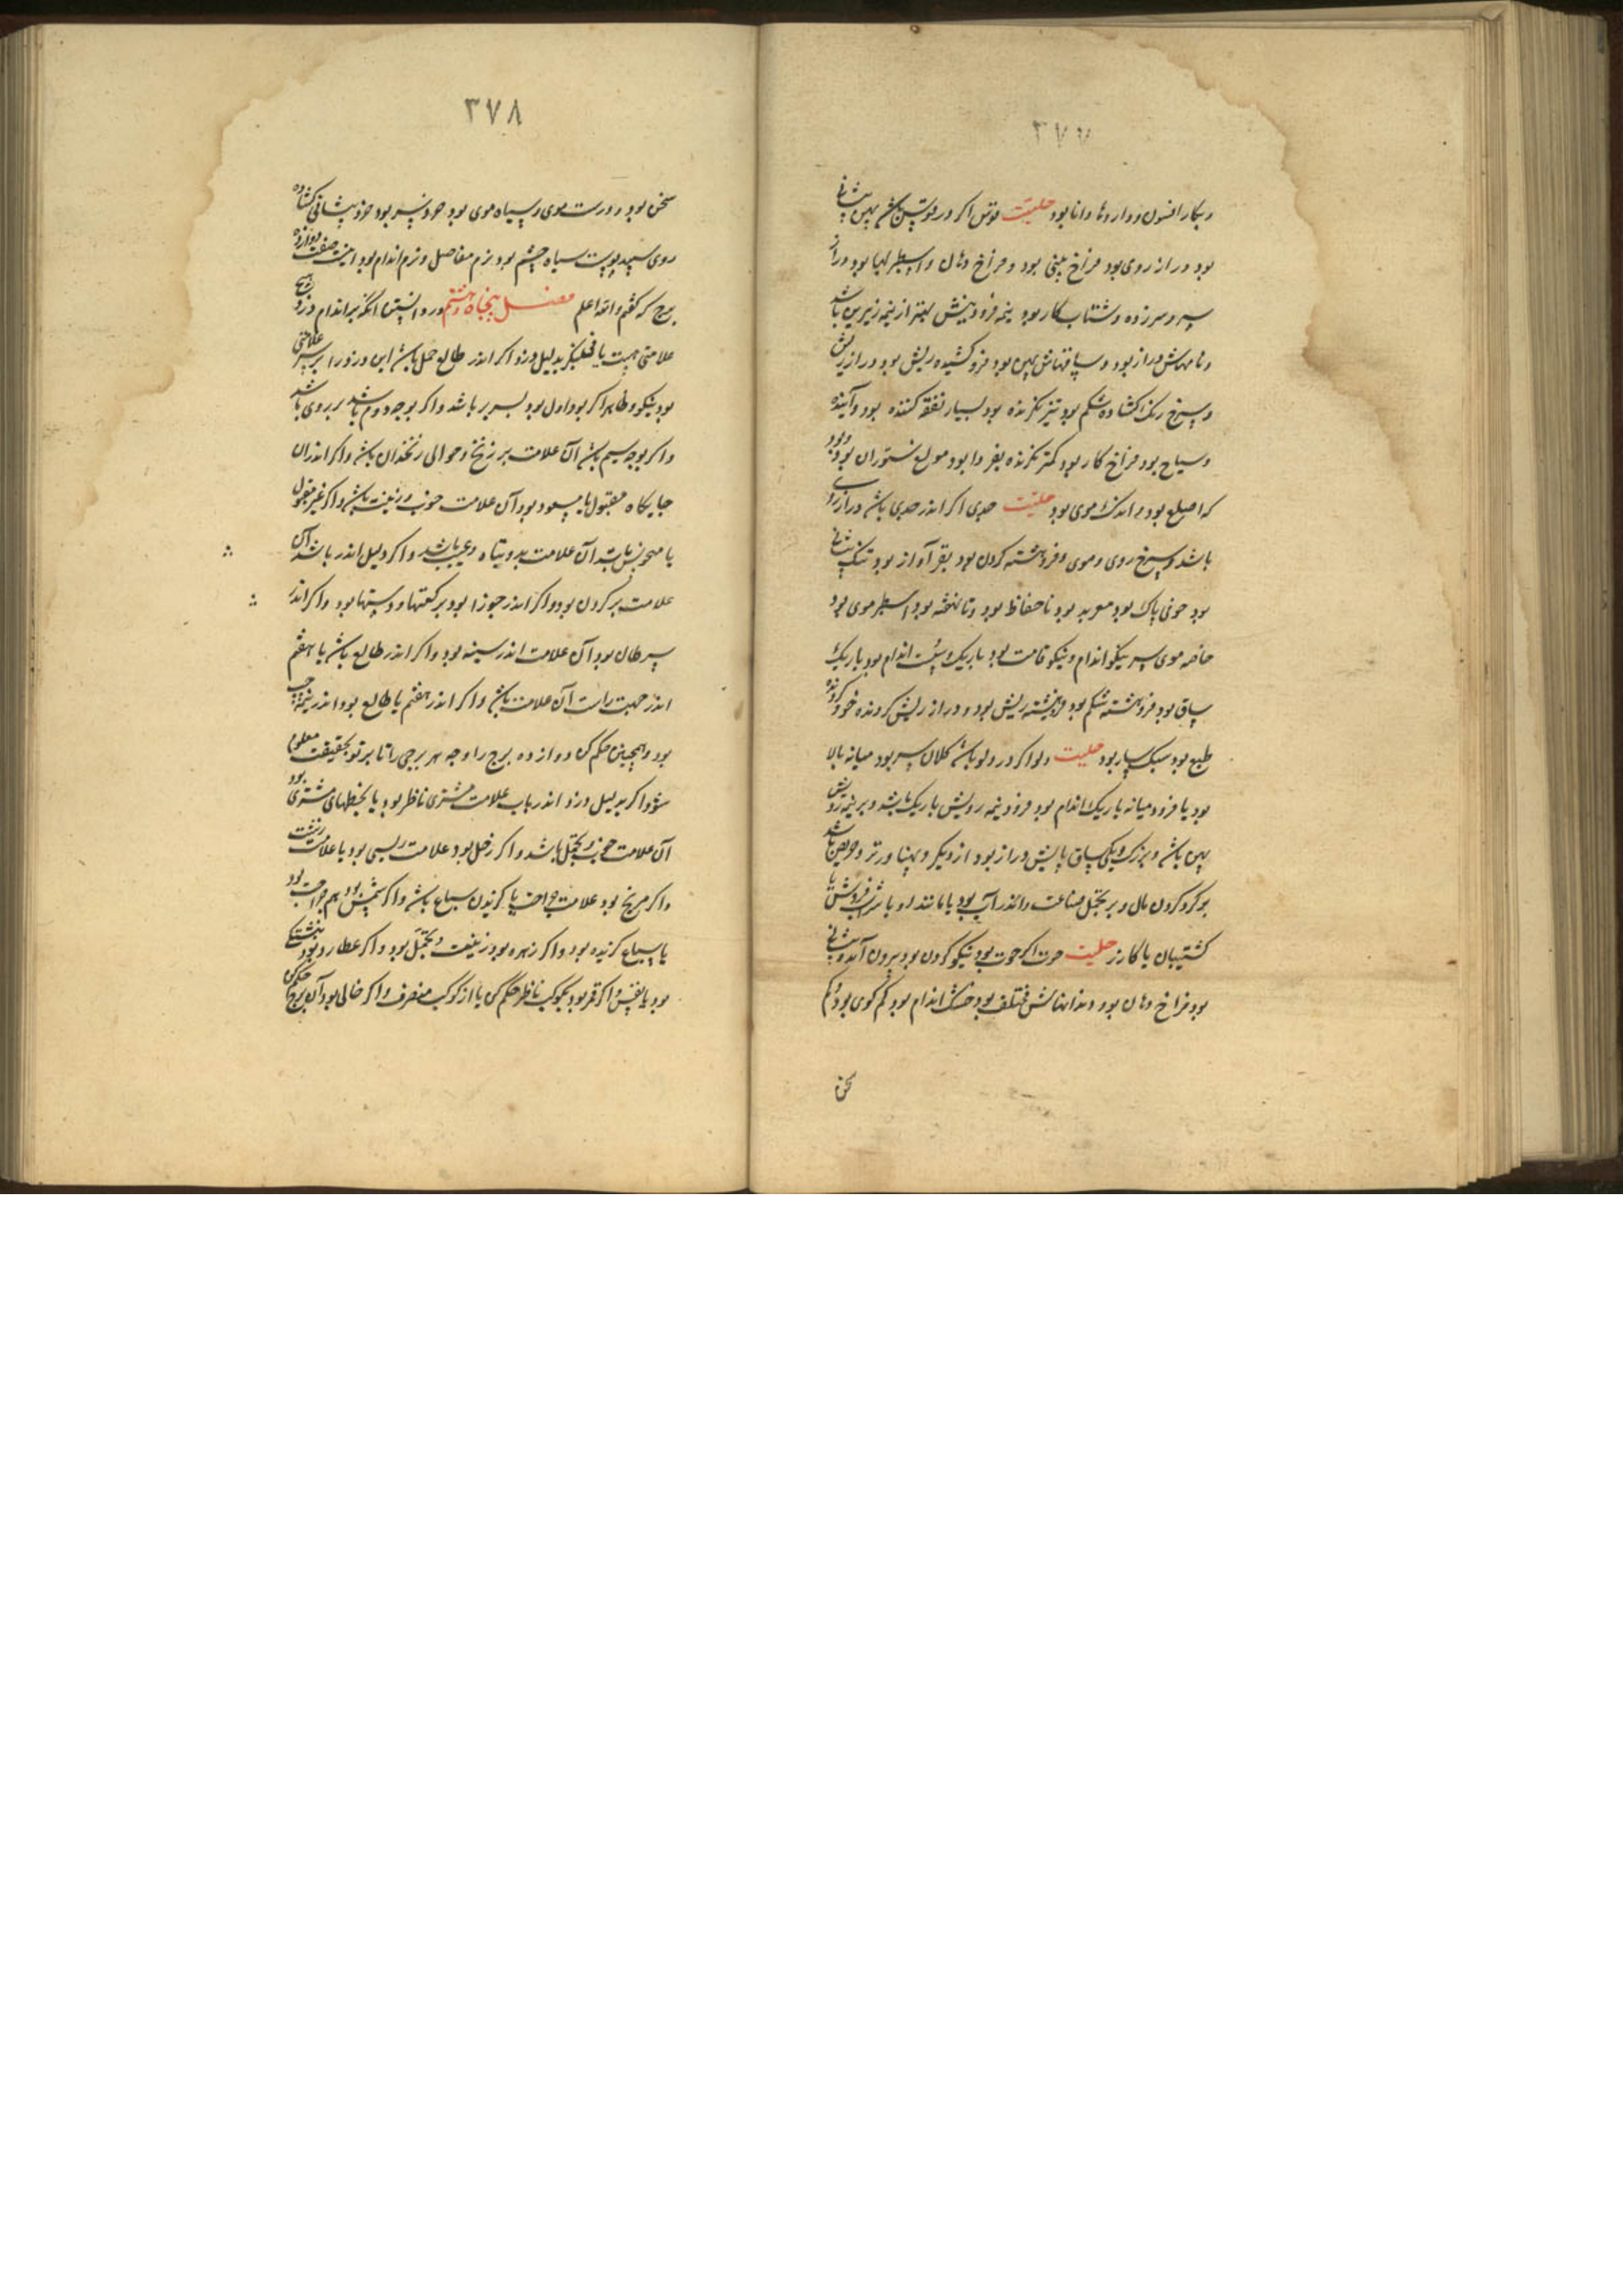 ٣٧٧
وبکار افسون و داروها دانا بود حلیت قوس اکر در قوس باشد پهن پیشانی
بود دراز روی بود فراخ بینی بود و فراخ دهان و اسطبر لبها بود دراز
سر و سرزده و شتاب کار بود نیمه فرودینش بهتر از نیمه زبرین باشد
و نامهاش دراز بود و ساقهاش پهن بود فرو کشیده ریش بود دراز ریش
و سرخ رنک کشاده شکم بود تیز نکرنده بود بسیار نفقه کننده بود و آینده
و سیاح بود فراخ کار بود کمتر نکرنده بفردا بود مولع بستوران بود و بود
که اصلع بود و اندک موی بود حلیت جدی اکر اندر جدی باشد دراز روی
باشد و سرخ روی و موی و فروهشته کردن بود بقر آواز بود تنک پیشانی
بود خونی پاک بود معربد بود ناحفاظ بود و تا نهفته بود اسطبر موی بود
خاصه موی سر نیکو اندام و نیکو قامت بود باریک و سست اندام بود باریک
ساق بود فروهشته شکم بود فروهشته ریش بود و دراز ریش کردنده خو کرونده
طبع بود سبکسار بود حلیت دلو اکر در دلو باشد کلان سر بود میانه بالا
بود یا فرود میانه باریک اندام بود فرود نیمه رویش باریک باشد و بر نیمه رویش
پهن باشد و بزرک و یکی ساق پایش دراز بود از دیکر و پهناورتر و حریص باشد
بر کرد کردن مال و بر تجمل صناعت و اندر آب بود یا مانند او یا شراب فروش یا
کشتیبان یا کازر حلیت حوت اکر حوت بود نیکو کردن بود بیرون آمده پیشانی
بود فراخ دهان بود و دندانهاش مختلف بود خشک اندام بود کم کوی بود و کم
سخن
٣٧٨
سخن بود و درست موی و سیاه موی بود خرد سر بود خرد پیشانی کشاده
روی سپید پوست سیاه چشم بود نرم مفاصل و نرم اندام بود اینست صفت دوازده
برج که کفتم والله اعلم فصل پنجاه و هشتم در دانستن انکه بر اندام دزد هیچ
علامتی هست یا نی بنکر بدلیل دزد اکر اندر طالع حمل باشد این دزد را بر سر علامتی
بود نیکو و ظاهر اکر بود اول بود بسر بر باشد و اکر بوجه دوم باشد بر روی باشد
و اکر بوجه سیم باشد آن علامت بر زنخ و حوالی زنخدان باشد و اکر اندران
جایکاه مقبول یا مسعود بود آن علامت خوب و زینت باشد و اکر غیر مقبول
یا منحوس باشد آن علامت بد و تباه و عیب باشد و اکر دلیل اندر باشد آن
علامت بر کردن بود و اکر اندر جوزا بود بر کتفها و دستها بود و اکر اندر
سرطان بود آن علامت اندر سینه بود و اکر اندر طالع باشد یا هفتم
اندر جهت راست آن علامت باشد و اکر اندر هفتم یا طالع بود اندر نیمه چپ
بود و همچنین حکم کن دوازده برج را و جه هر برجی را تا بر تو بحقیقت معلوم
شود و اکر بدلیل دزد اندر باب علامت مشتری ناظر بود یا بخطهای مشتری بود
آن علامت خوب و تجمل باشد و اکر زحل بود علامت ریسی بود یا علامت زشت
و اکر مریخ بود علامت جراحت یا کزیدن سباع باشد و اکر شمس بود هم جراحت بود
یا سباع کزیده بود و اکر زهره بود زینت و تجمل بود و اکر عطارد بود نبشتکی
بود یا نقش و اکر قمر بود بکوکب ناظر حکم کن یا از کوکب منصرف و اکر خالی بود آن برج حکم کن